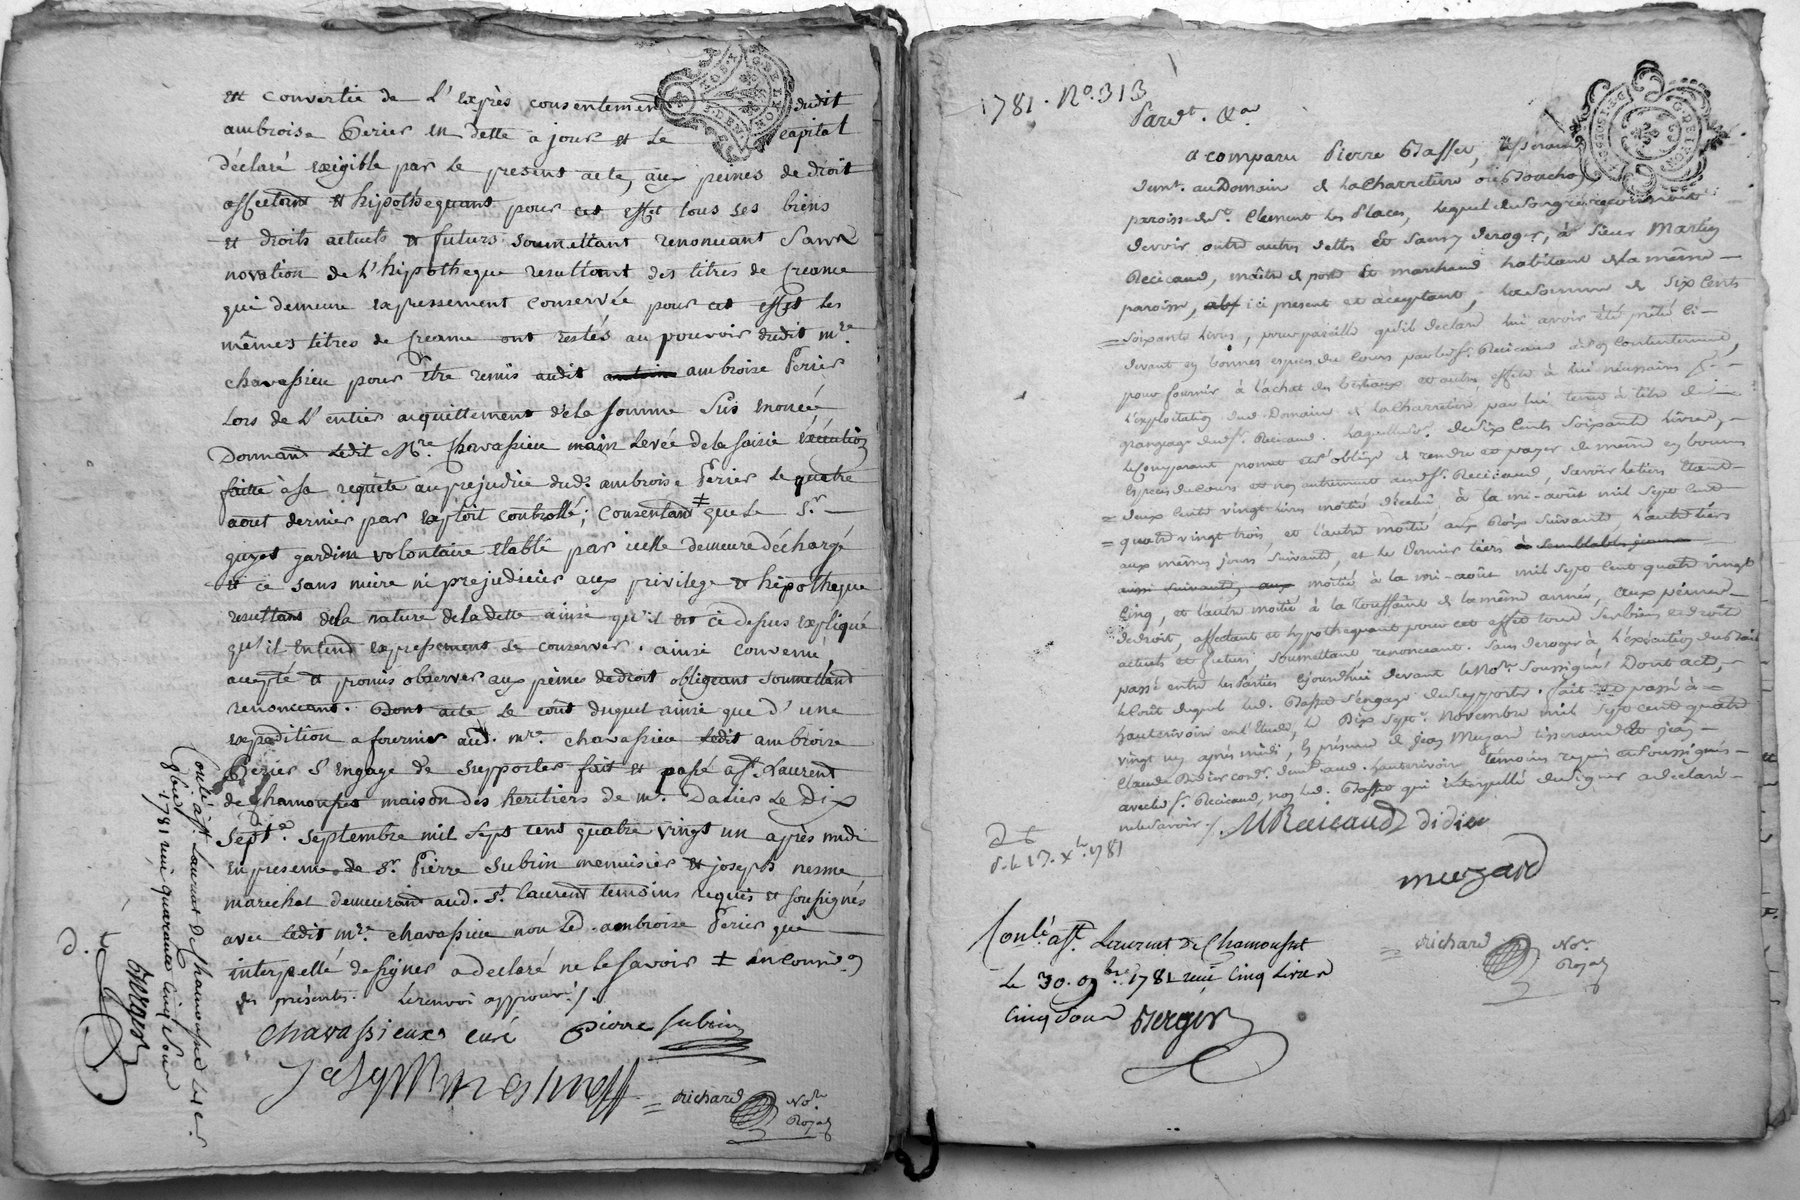 est convertie de L'exprès consentement dudit
ambroise Perier en dette à jour et le capital
déclaré exigible par le present acte, aux peines de droit
affectant et hipothequant pour cet effet tous ses biens
et droits actuels et futurs soumettant renoncant Sans
novation de L'hipotheque resultant des titres de Creance
qui demeure expressement Conservée pour cet effet les
mêmes titres de Creance ont restés au pouvoir dudit mre
chavassieu pour être remis audit ambroise Perier
Lors de L'entier acquittement de la somme Sus enoncée,
Donnant Ledit Mre Chavassieu main Levée de la saisie exécution
faitte à sa requête au prejudice dud. ambroise Perier le quatre
aout dernier par exploit Controllé; Consentant ‡ que Le Sr
gardien volontaire etabli par icelle demeure déchargé
et ce sans nuire ni prejudicier aux privilege et hipotheque
resultans de la nature de la dette ainsi qu'il est ci dessus expliqué
qu'il entend expressement se conserver. ainsi convenu
accepté et promis observer aux peines de droit obligeant soumettant
renonceant. Dont acte Le cout duquel ainsi que d'une
expedition a fournir aud. mre chavassieu Ledit ambroise
Perier s'engage de supporter fait et passé a St Laurent
de Chamousset maison des heritiers de mr Le Dix
Sept septembre mil sept cent quatre vingt un après midi
en presence de Sr Pierre Subrin menuisier et joseph nesme
marechal demeurant aud. St Laurent temoins requis et soussignés
avec Ledit mre chavassieu non Led. ambroise Perier que
interpellé de signer a declaré ne le savoir ‡
des présentes. Le renvoi approuvé /.
Chavassieux curé Pierre subrin
richard Nore
Royal
Conlé a St Laurent de Chamousset Le
1781 reçu quarante cinq sous
Berger
1781. No. 313
Pardt. &a
a comparu Pierre Basset,
demt. au Domaine de la Charretiere
paroisse de St. Clement les Places, lequel de son gré reconnoit
devoir outre autres dettes et sans y deroger, à Sieur Martin
Recicaud, maître de poste et marchand habitant de la même
paroisse, ici present et acceptant, la somme de six cents
soixante livres, pour pareille qu'il declare lui avoir été prêté ci-
devant en bonnes especes du cours par led. Sr. Recicaud à son contentement,
pour fournir à l'achat des bestiaux et autres effets à lui necessaires p.
L'exploitation dud. Domaine de la Charretiere par lui tenu à titre de
grangeage dud. Sr. Recicaud. Laquelle de six cents soixante livres,
le comparant promet et s'oblige de rendre et payer de même en bonnes
especes du cours et non autrement aud. Sr. Recicaud, savoir le tiers etant
deux cents vingt livres moitié d'icelui à la mi-août mil sept cent
quatre vingt trois, et l'autre moitié aux Rois suivants, l'autre tiers
aux mêmes jours suivants, et le dernier tiers à semblables jours
moitié à la mi-août mil sept cent quatre vingt
cinq, et l'autre moitié à la Toussaint de la même année, aux peines
de droit, affectant et hypothequant pour cet effet tous ses biens et droits
actuels et futurs, soumettant renonceant. Sans deroger à l'execution du bail
passé entre les parties cejourdhui devant le Nore. soussigné Dont acte,
le coût duquel led. Basset s'engage de supporter. fait et passé à
hauterivoire en l'etude, le Dix sept. Novembre mil sept cent quatre
vingt un après midi, en presence de jean Muzard tisserand et jean
Claude Didier cordr. demt. aud. hauterivoire témoins requis et soussignés
avec led. Sr. Recicaud, non led. Basset qui interpellé de signer a declaré
ne le savoir /. MRecicaud didier
muzard
richard Nore
Royal
d. le 17. Xbre 1781
Conlé a St. Laurent de Chamousset
Le 30. 9bre 1781 reçu Cinq Livres
Cinq Sous Berger